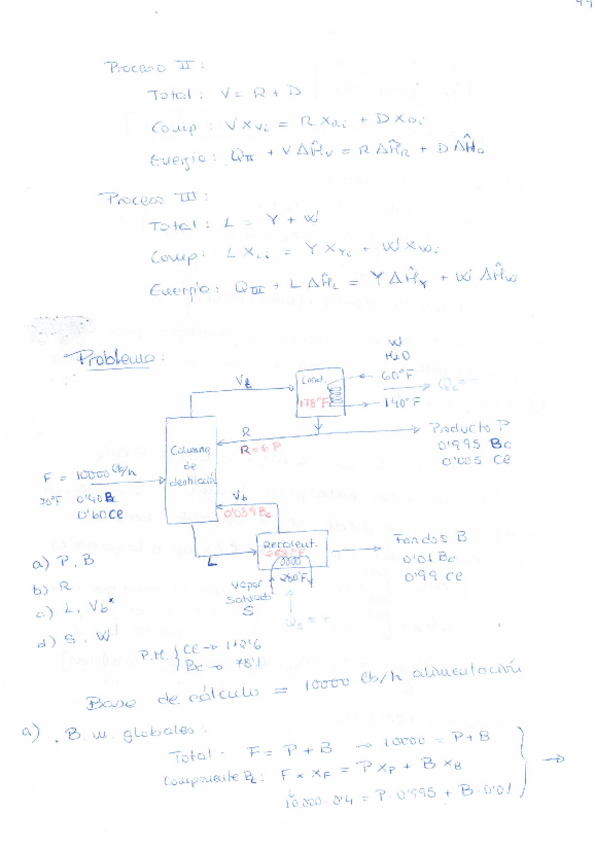 Proceso II:
Total: V = R + D
Comp: V x_Vi = R x_Ri + D x_Di
Energía: Q_II + V ΔĤ_V = R ΔĤ_R + D ΔĤ_D
Proceso III:
Total: L = Y + W
Comp: L x_Li = Y x_Yi + W x_Wi
Energía: Q_III + L ΔĤ_L = Y ΔĤ_Y + W ΔĤ_W
Problema:
W
H2O
60°F
140°F
Cond.
178°F
V_t
R
R = 6P
Producto P
0'995 Bc
0'005 Ce
Columna
de
destilación
F = 10000 lb/h
70°F 0'40 Bc
0'60 Ce
V_b
0'039 Bc
L
Fondos B
0'01 Bc
0'99 Ce
Vapor
saturado
S
280°F
a) P, B
b) R
c) L, V_b*
d) S, W
P.M. { Ce → 112'6
Bc → 78'1
Base de cálculo = 10000 lb/h alimentación
a) . B.m. globales:
Total: F = P + B → 10000 = P + B
Componente Bc: F x x_F = P x_P + B x_B
10.000 · 0'4 = P · 0'995 + B · 0'01 } →